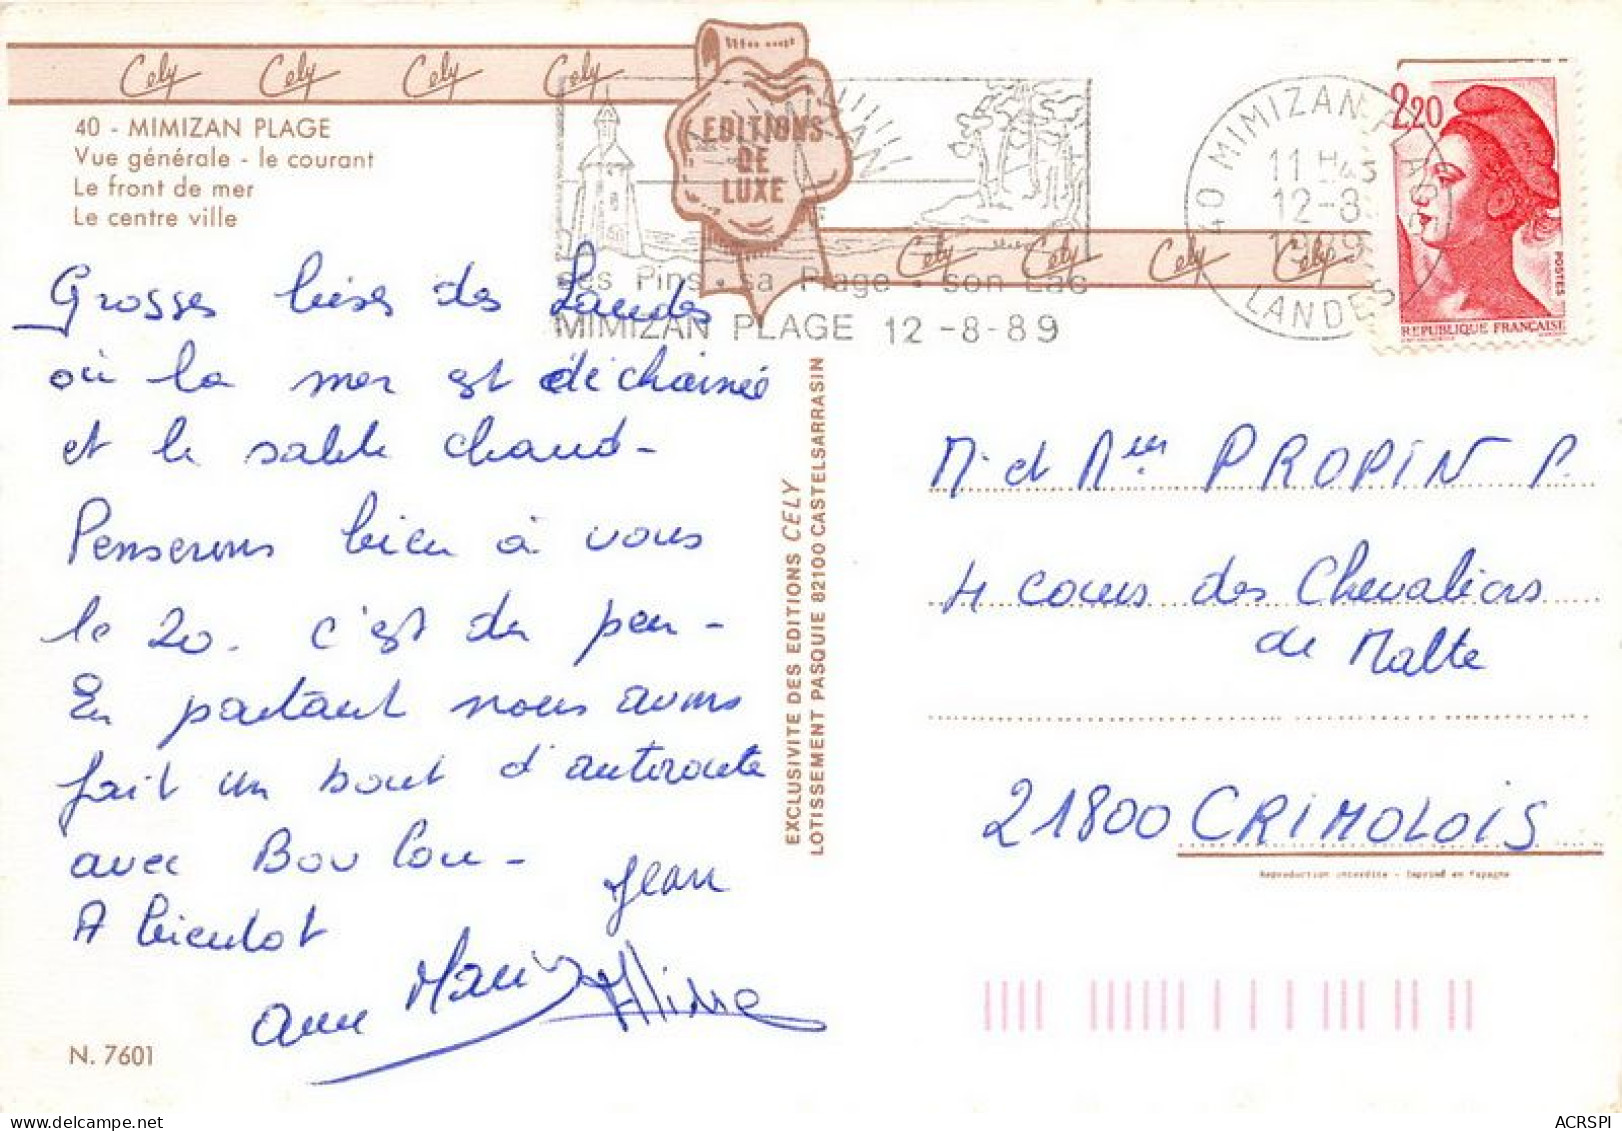 Cely Cely Cely Cely
EDITIONS
DE
LUXE
40 - MIMIZAN PLAGE
Vue générale - le courant
Le front de mer
Le centre ville
ses Pins • sa Plage • son Lac
MIMIZAN PLAGE 12-8-89
Cely Cely Cely Cely
40 MIMIZAN PLAGE
11 H45
12-8
1989
LANDES
2,20
POSTES
REPUBLIQUE FRANÇAISE
Grosses bises des Landes
où la mer est déchainée
et le sable chaud -
Penserons bien à vous
le 20. C'est du peu -
En partant nous avons
fait un bout d'autoroute
avec Boulou -
A bientot
Jean
Ann Marie
N. 7601
EXCLUSIVITE DES EDITIONS CELY
LOTISSEMENT PASQUIE 82100 CASTELSARRASIN
Mr et Mme PROPIN P.
4 cours des Chevaliers
de Malte
21800 CRIMOLOIS
Reproduction interdite - Imprimé en Espagne
ACRSPI